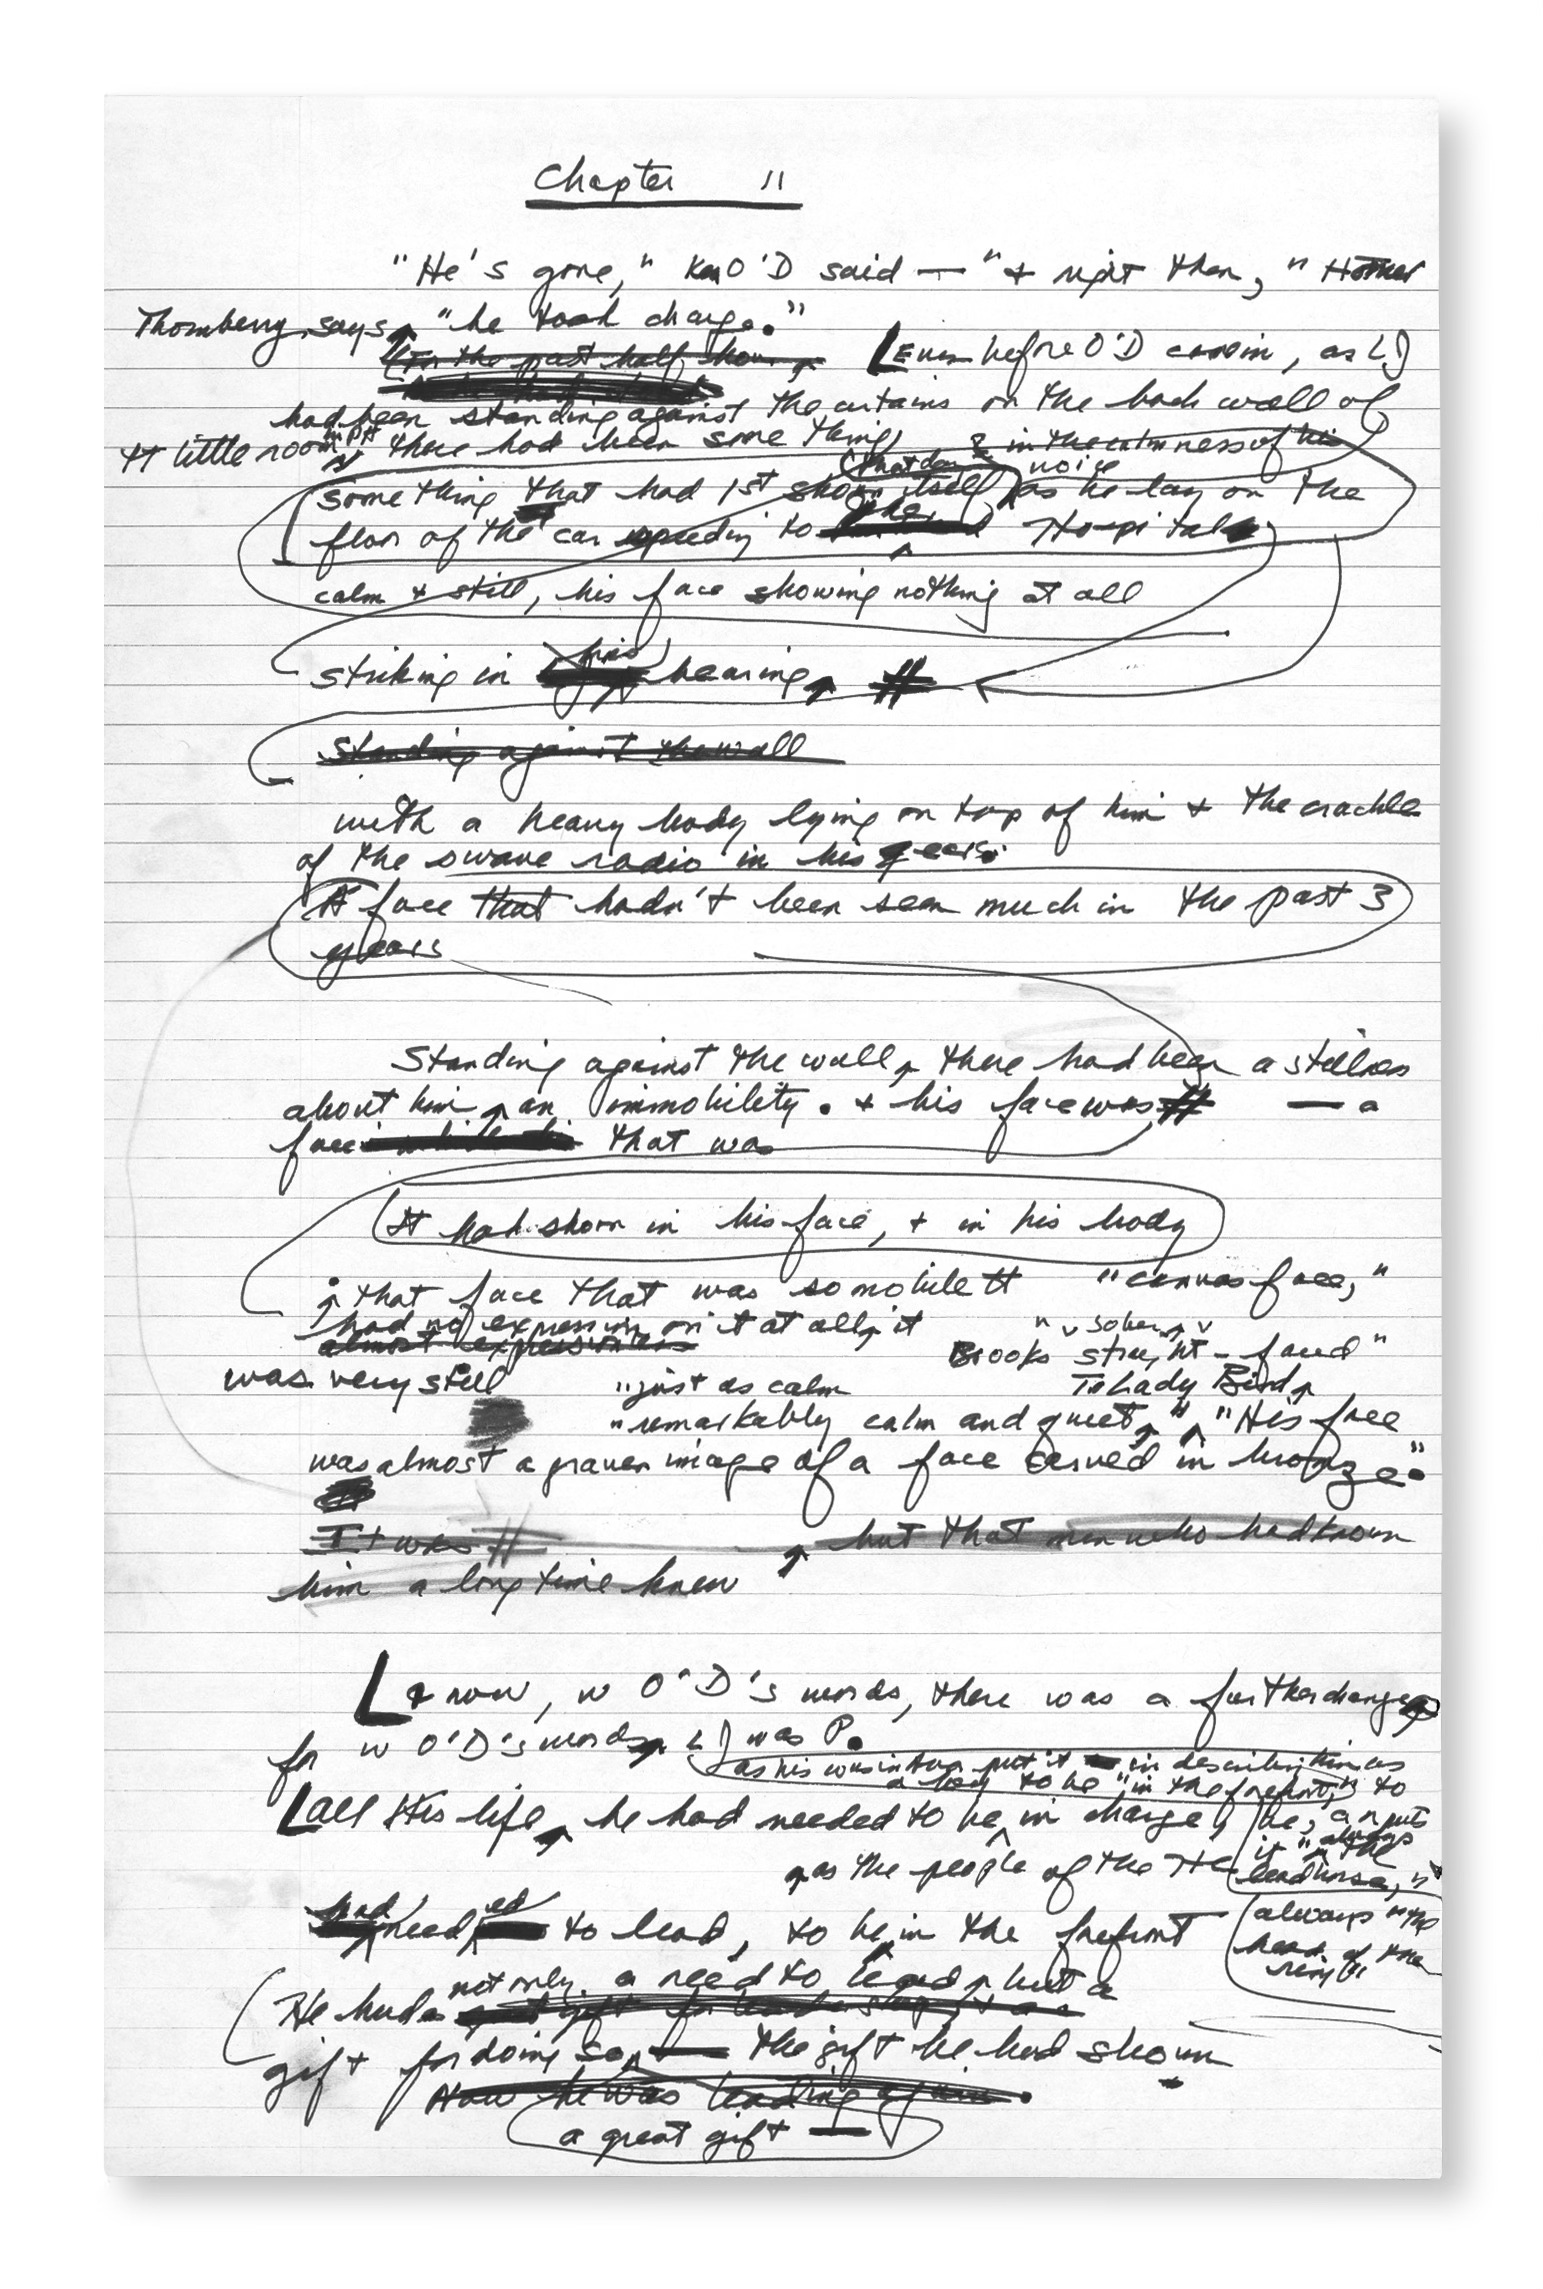 Chapter 11
"He's gone," Ken O'D said — "+ right then," Homer
Thornberry says, "he took charge."
For the past half hour
Even before O'D came in, as LJ
had been standing against the curtains on the back wall of
tt little room in PH there had been something
in the calmness of his
voice
that day
something that had 1st shown itself as he lay on the
floor of the car speeding to the Hospital
calm + still, his face showing nothing at all
striking in his bearing, #
Standing against the wall
with a heavy body lying on top of him + the crackle
of the swave radio in his ears.
A face that hadn't been seen much in the past 3
years
Standing against the wall, there had been a stillness
about him, an immobility. + his face was # — a
face that was
It had shown in his face, + in his body
; that face that was so mobile tt "canvas face,"
had no expression on it at all, it
almost expressionless
"v sober, v
Brooks straight-faced"
was very still
"just as calm
To Lady Bird,
"remarkably calm and quiet," "His face
was almost a graven image of a face carved in bronze."
It was #
, but that men who had known
him a long time knew
+ now, w O'D's words, there was a further change
for w O'D's words, LJ was P.
as his cousin Ava put it in describing him as
a boy to be "in the forefront," to
All His life, he had needed to be in charge,
be, as A puts
it "always the
lead horse,"
as the people of the HC
had needed to lead, to be in the forefront
always "the
head of the
ring"
not only a need to lead, but a
He had a great gift for leadership, it was
gift for doing so, — the gift he had shown
Now he was leading again.
a great gift —